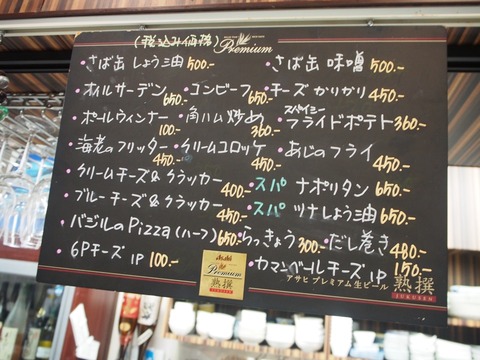 (税込み価格)
Premium
・さば缶 しょう油 500.-
・さば缶 味噌 500.-
・オイルサーデン 650.-
・コンビーフ 650.-
・チーズ かりかり 450.-
・ポールウィンナー 100.-
・角ハム炒め 360.-
・スパイシーフライドポテト 360.-
・海老のフリッター 450.-
・クリームコロッケ 450.-
・あじのフライ 450.-
・クリームチーズ&クラッカー 400.-
・スパ ナポリタン 650.-
・ブルーチーズ&クラッカー 450.-
・スパ ツナしょう油 650.-
・バジルのPizza(ハーフ) 650.-
・らっきょう 300.-
・だし巻き 480.-
・6Pチーズ 1P 100.-
・カマンベールチーズ 1P 150.-
Asahi
Premium
熟撰
アサヒ プレミアム生ビール 熟撰
JUKUSEN